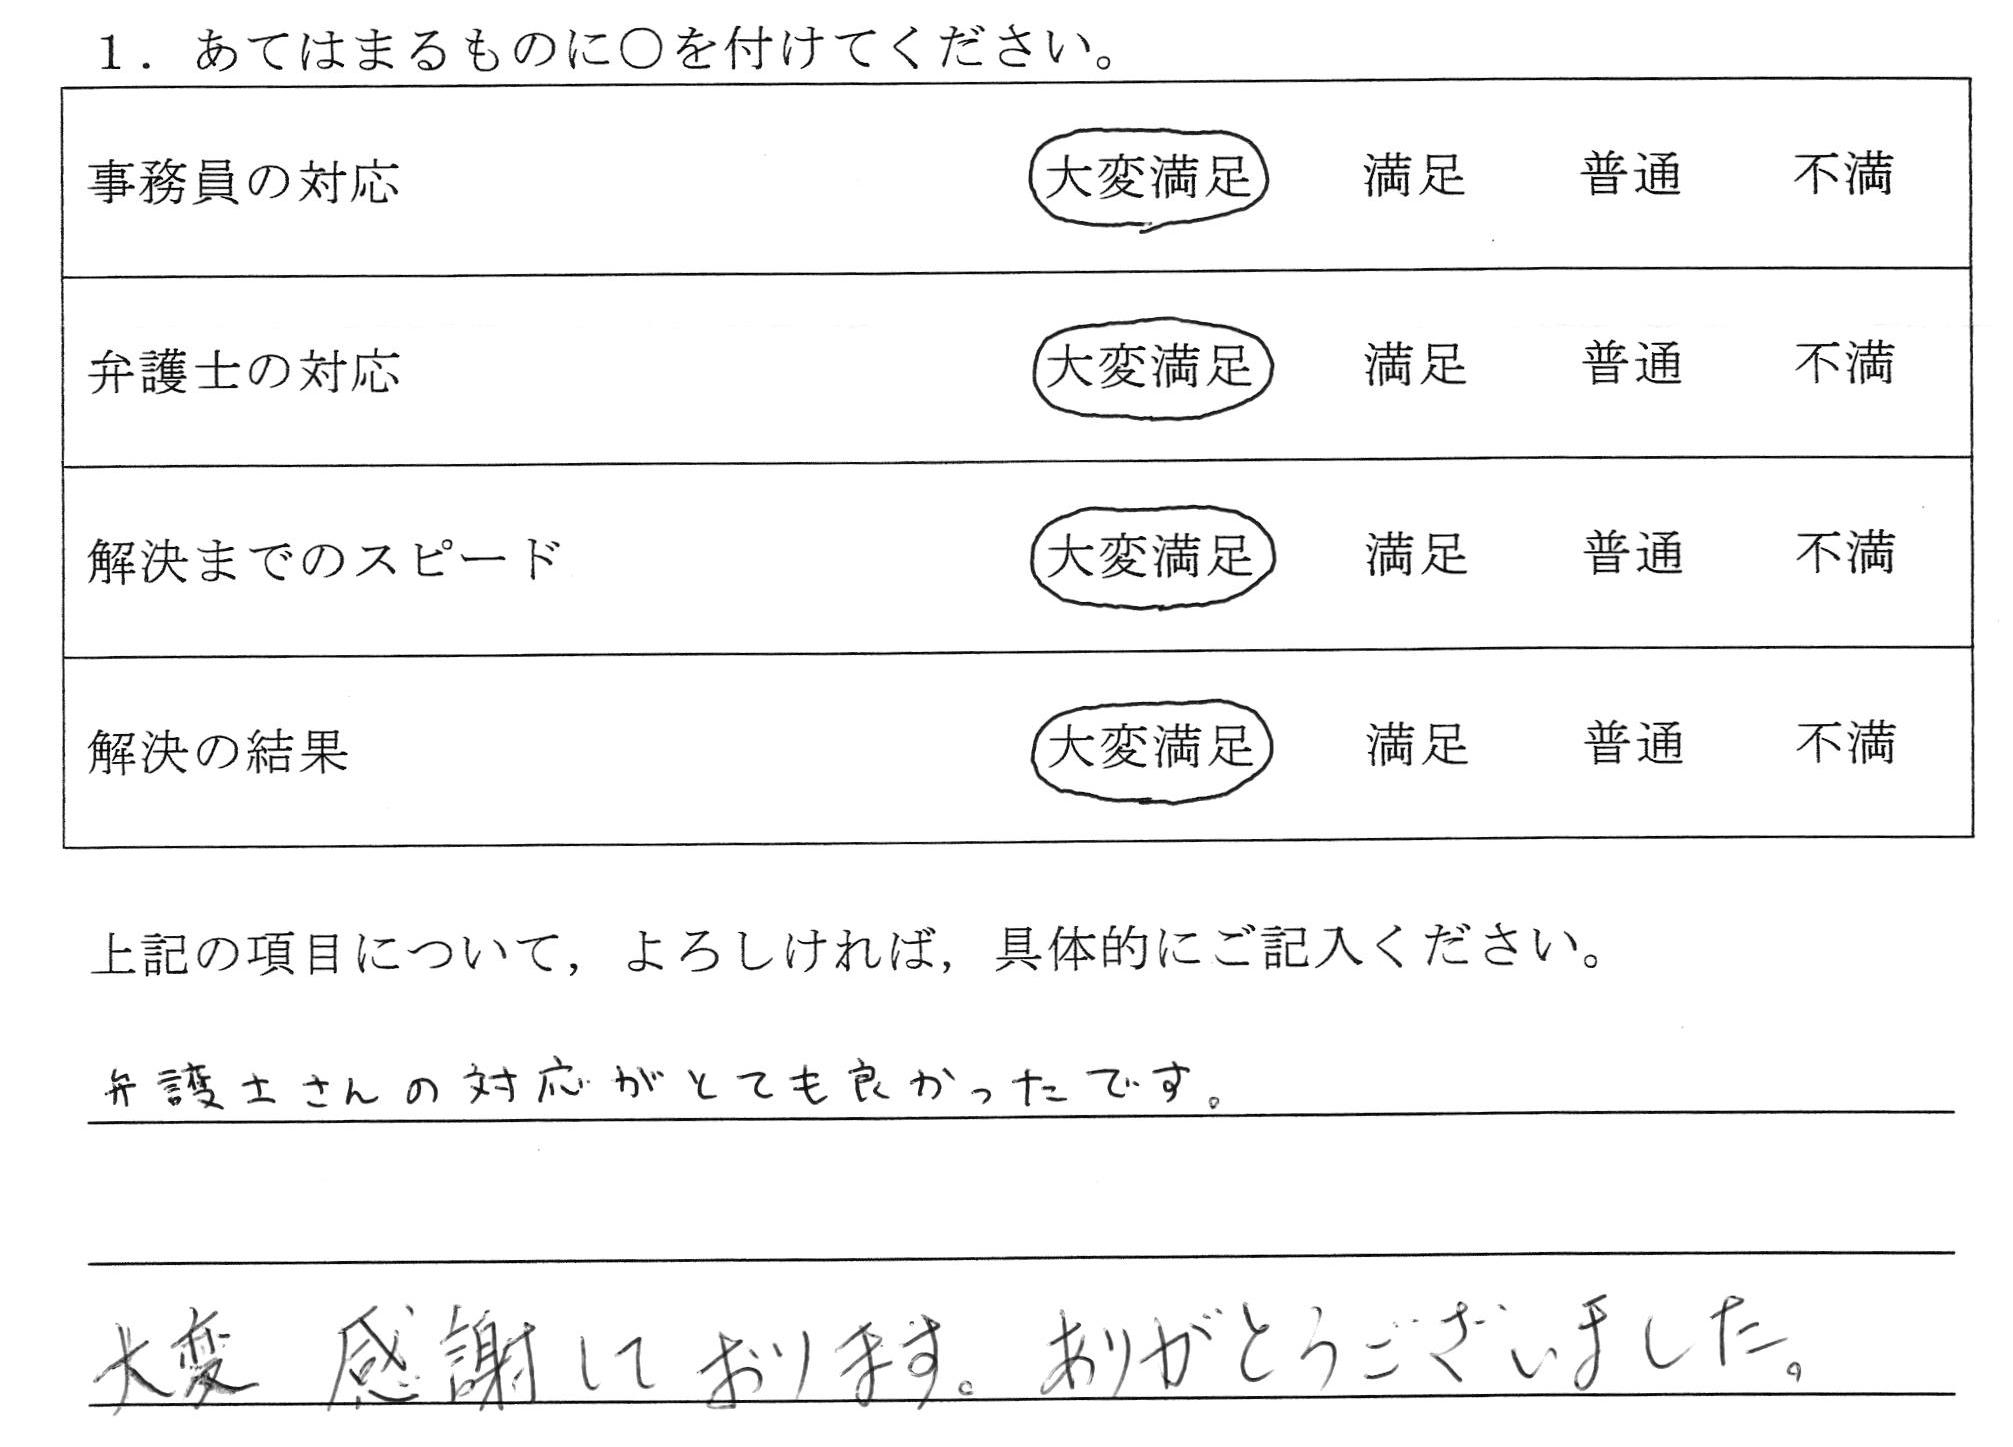 1．あてはまるものに○を付けてください。
事務員の対応 大変満足 満足 普通 不満
弁護士の対応 大変満足 満足 普通 不満
解決までのスピード 大変満足 満足 普通 不満
解決の結果 大変満足 満足 普通 不満
上記の項目について，よろしければ，具体的にご記入ください。
弁護士さんの対応がとても良かったです。
大変 感謝しております。ありがとうございました。